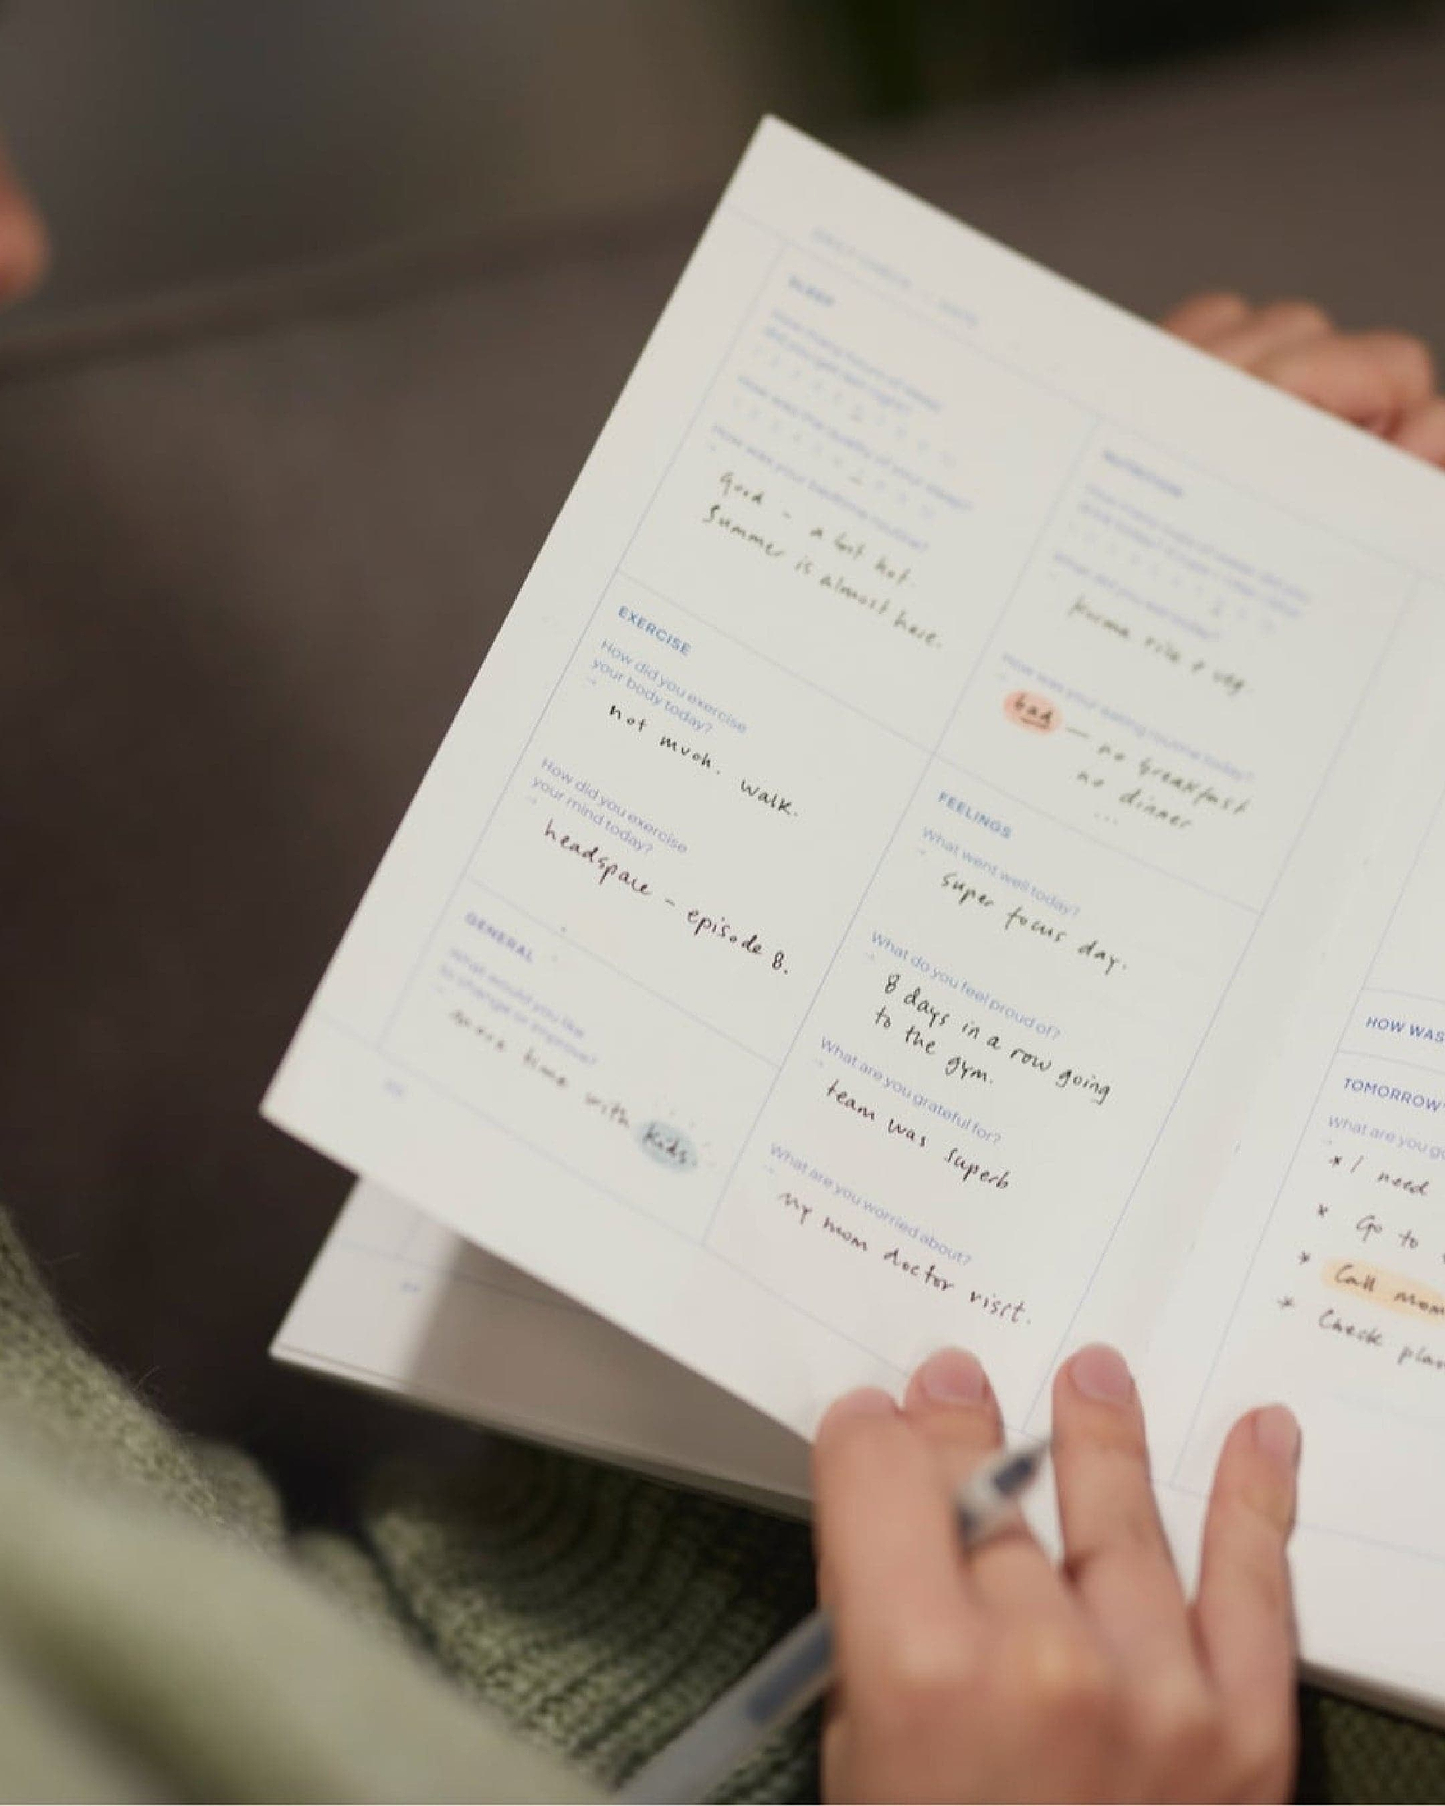 SLEEP
How many hours of sleep
did you get last night?
How was the quality of your sleep?
How was your bedtime routine?
Good - a bit hot.
Summer is almost here.
EXERCISE
How did you exercise
your body today?
not much. walk.
How did you exercise
your mind today?
headspace - episode 8.
GENERAL
What would you like
to change or improve?
more time with kids.
NUTRITION
What did you eat today?
rice + veg.
How was your eating routine today?
bad — no breakfast
no dinner
...
FEELINGS
What went well today?
super focus day.
What do you feel proud of?
8 days in a row going
to the gym.
What are you grateful for?
team was superb
What are you worried about?
my mom doctor visit.
HOW WAS
TOMORROW
What are you go
* I need
* Go to
* Call mom
* Check plan